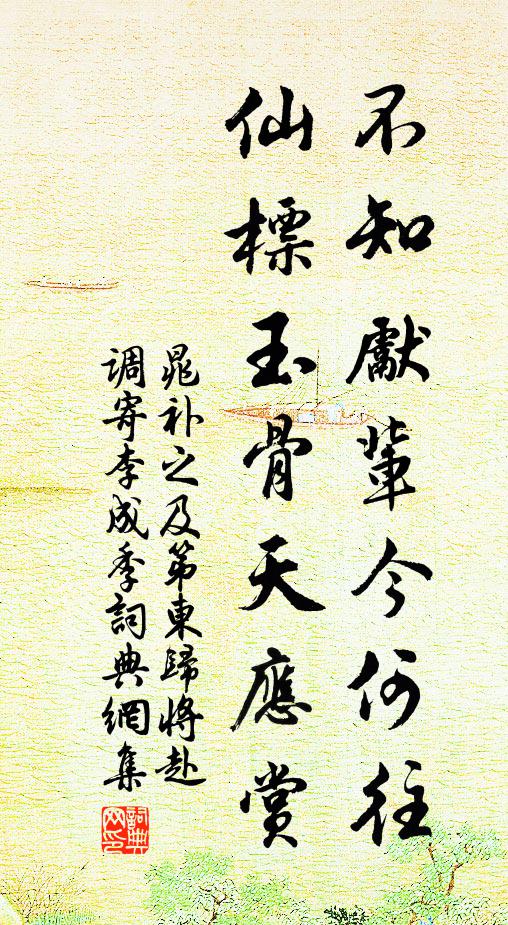 不知獻輩今何往
仙標玉骨天應賞
晁补之及第東歸將赴
調寄李成季詞典網集
詞典网印